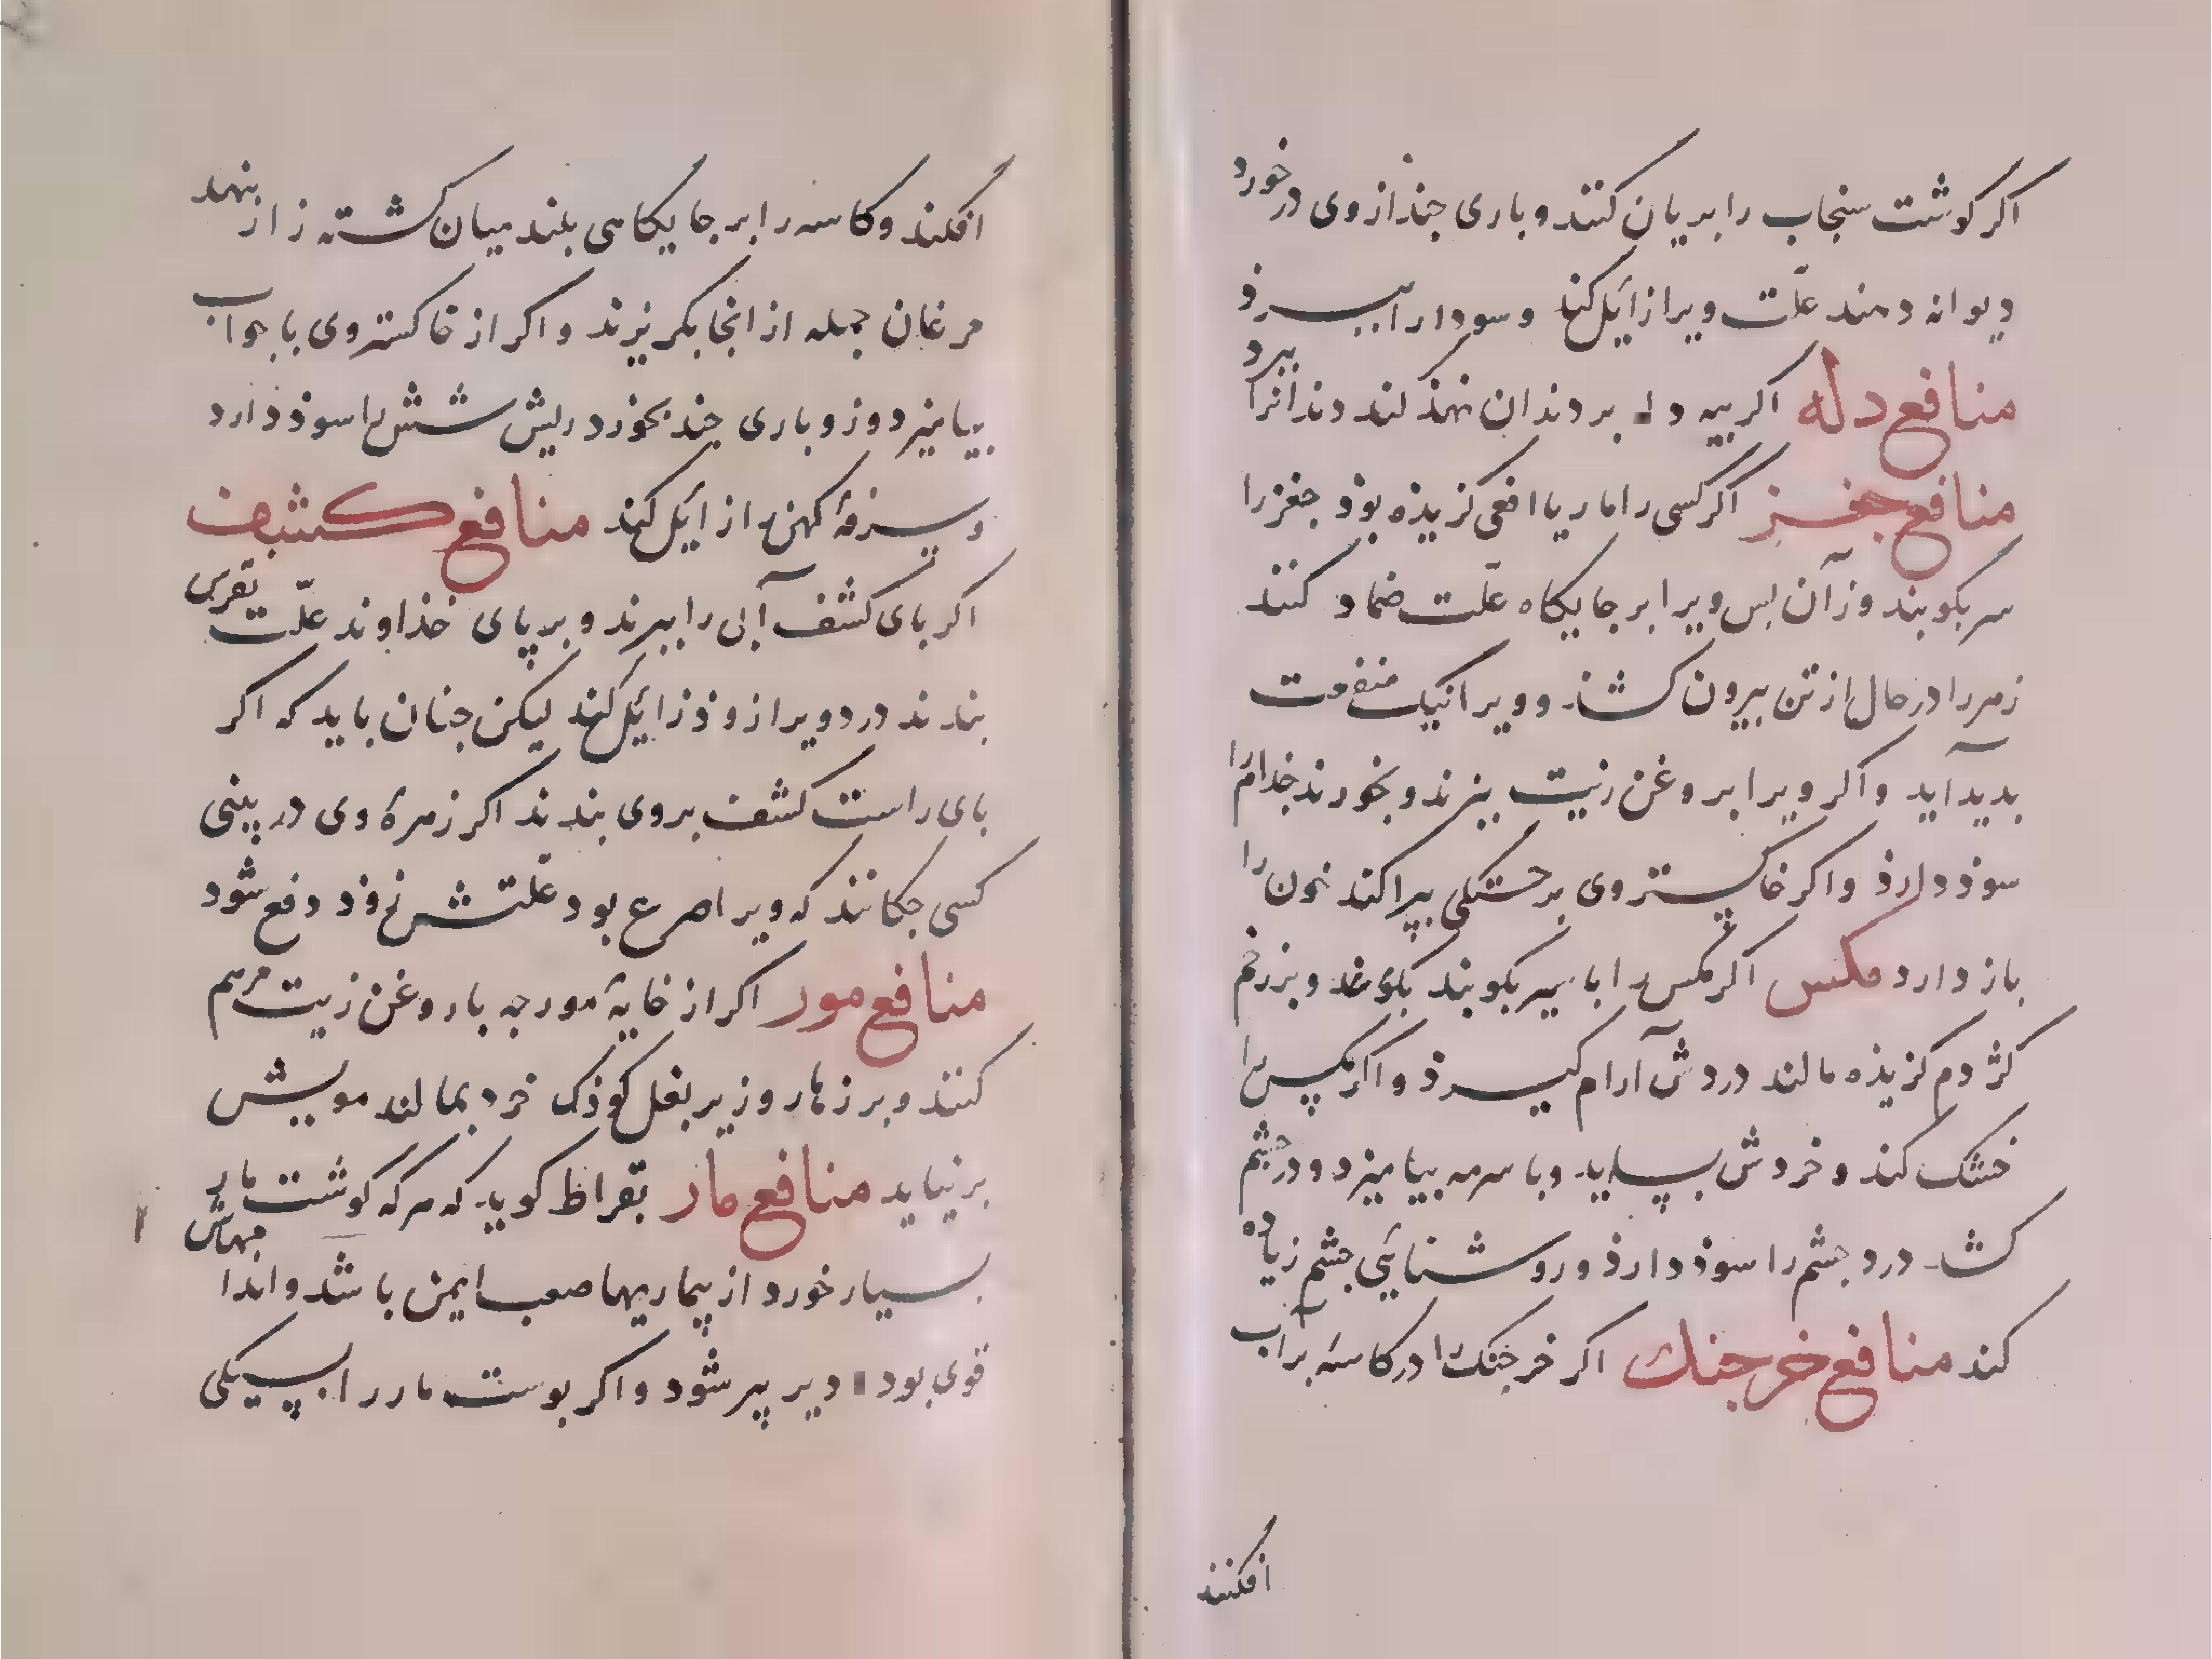 اکر کوشت سنجاب را بریان کنند و باری جند از وی در خورد
دیوانه دهند علّت ویرا زایل کند و سودا را ببرذ
منافع دله اکر بیه دله بر دندان نهذ کند دندانرا ببرد
منافع جغز اکر کسی را مار یا افعی کزیذه بوذ جغز را
سر بکوبند وز آن بس ویرا بر جایکاه علّت ضماد کنند
زهر را در حال از تن بیرون کشذ و ویرا نیک منفعت
بدید آید و اکر ویرا بروغن زیت ببزند و بخورند جذام را
سوذ دارذ و اکر خاکستر وی بر خستکی ببراکند خون را
باز دارد مکس اکر مکس را با سیر بکوبند و بر زخم
کژدم کزیذه مالند دردش آرام کیرذ و اکر مکس را
خشک کند و خردش بساید و با سرمه بیامیزد و در جشم
کشد درد جشم را سوذ دارذ و روشنایی جشم زیاده
کند منافع خرجنک اکر خرجنک را در کاسه بر آب
افکنند
افکند و کاسه را بر جایکاهی بلند میان کشته زار نهد
مرغان جمله از انجا بکریزند و اکر از خاکستر وی با جواب
بیامیزد وز و باری جند بخورد ریش شش را سوذ دارد
و سرفهٔ کهن را زایل کند منافع کشف
اکر بای کشف آبی را ببرند و بر پای خذاوند علّت نقرس
بندند درد ویرا زوذ زایل کند لیکن جنان باید که اکر
بای راست کشف بر وی بندند اکر زهرهٔ وی در بینی
کسی جکانند که ویرا صرع بود علّتش زود دفع شود
منافع مور اکر از خایهٔ مورجه با روغن زیت مرهم
کنند و بر زهار و زیر بغل کوذک خرد بمالند مویش
بر نیاید منافع مار بقراط کوید که هرکه کوشت مار
بسیار خورد از بیماریها صعب ایمن باشد و اندامهاش
قوی بود دیر پیر شود و اکر بوست مار را بسیکی